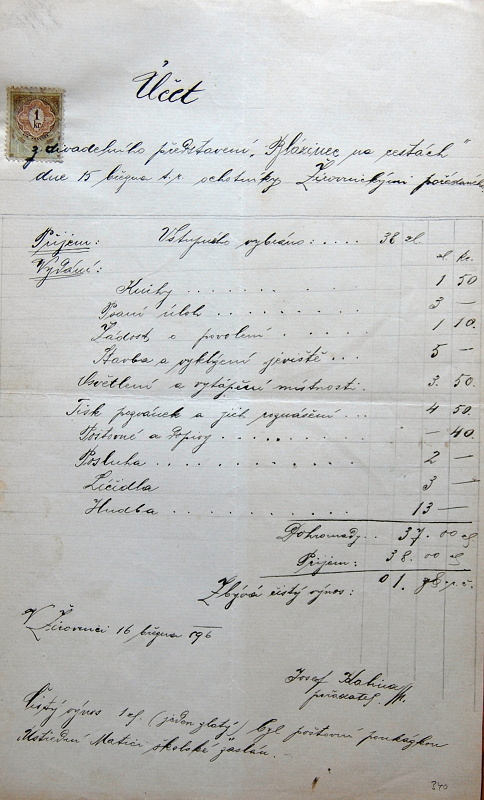 Účet
1
kr.
z divadelního představení „Blázinec na cestách"
dne 15 března t. r. ochotníky Žirovnickými pořádaného
Příjem: Vstupného vybráno: .... 38 zl.
Vydání: zl kr.
Knihy ........ 1 50
Psaní úloh ........ 3 —
Žádost o povolení ..... 1 10.
Stavba a vyklizení jeviště ... 5 —
Osvětlení a vytápění místnosti. 3. 50.
Tisk pozvánek a jich roznášení ... 4 50.
Poštovné a dopisy ........ — 40.
Posluha ............ 2 —
Líčidla 3 —
Hudba ............ 13 —
Dohromady .. 37. 00 zl
Příjem: 38. 00 zl
Zbývá čistý výnos: 01.
V Žirovnici 16 března
Josef
pořadatel.
Čistý výnos 1 zl. (jeden zlatý) byl poštovní poukázkou
Ústřední Matici školské zaslán. —
340